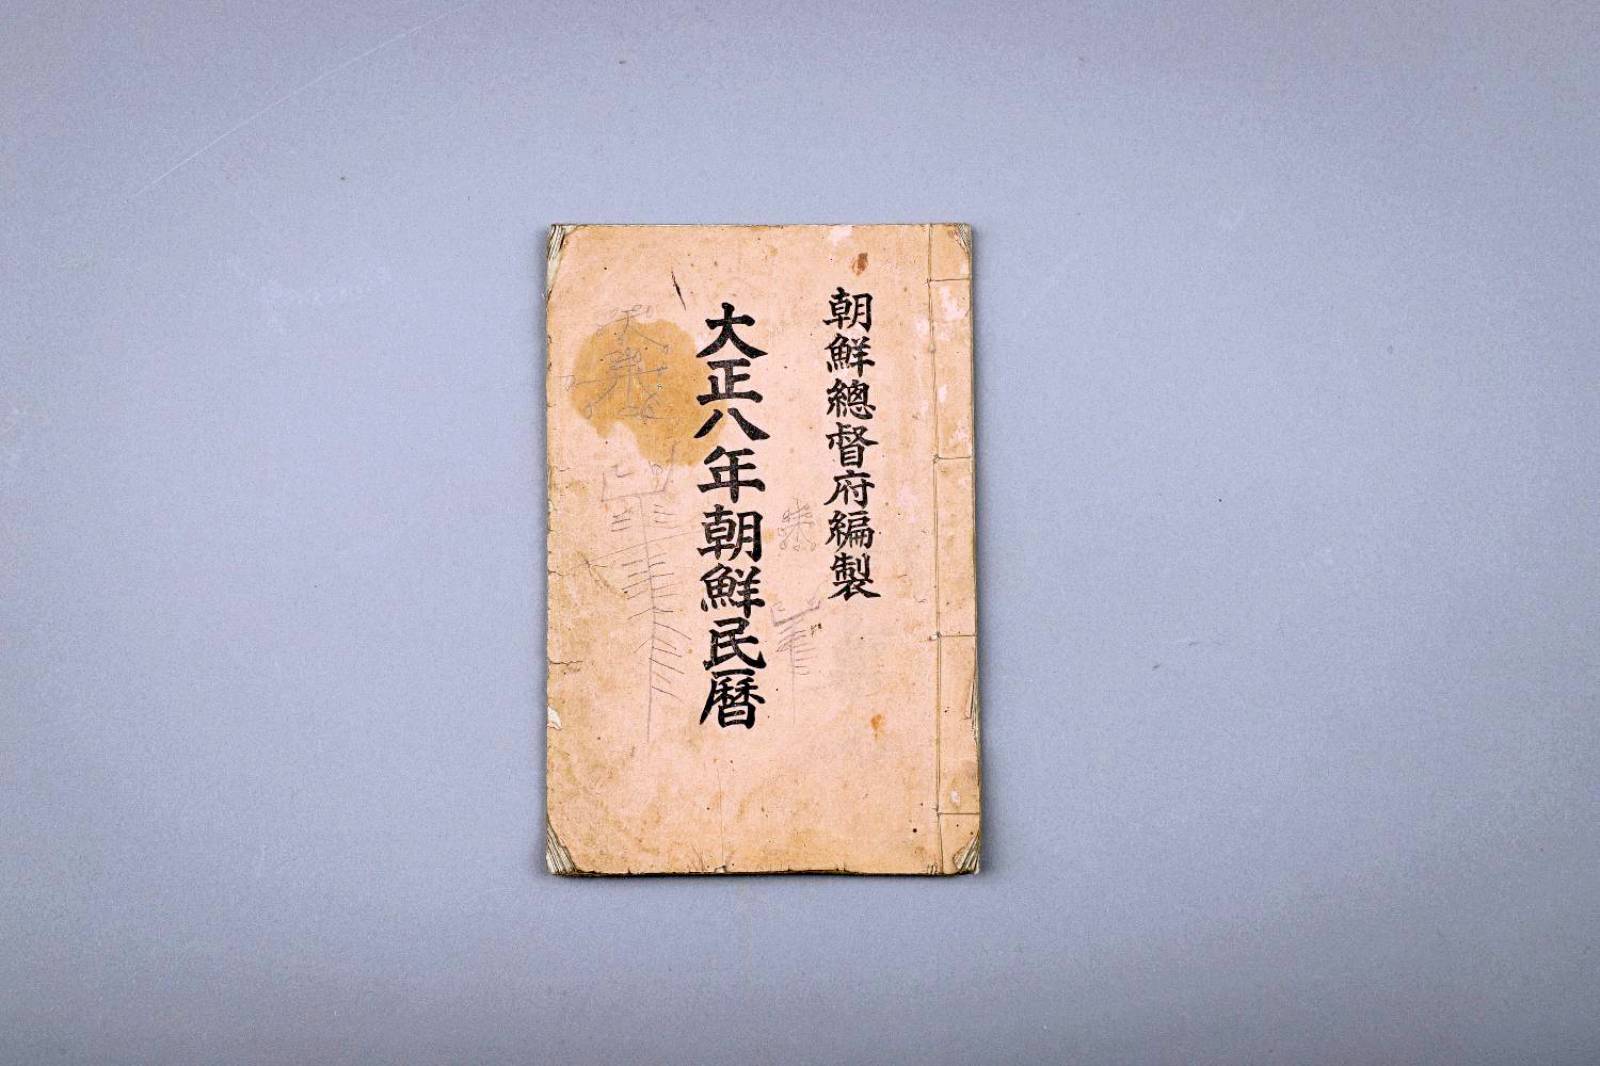 朝鮮總督府編製
大正八年朝鮮民曆